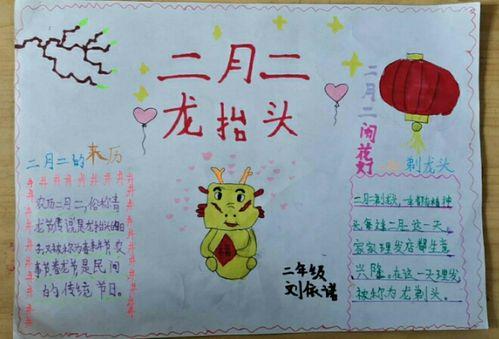 二月二
龙抬头
二月二的来历
农历二月二,俗称青
龙节,传说是龙抬头的日
子,又被称为春耕节、农
事节、春龙节,是民间
的传统节日。
福
二年级
二月二闹花灯
剃龙头
二月二剃龙头,一年都有精神
长。每逢二月二这一天,
家家理发店都生意
兴隆。在这一天理发
被称为龙剃头。